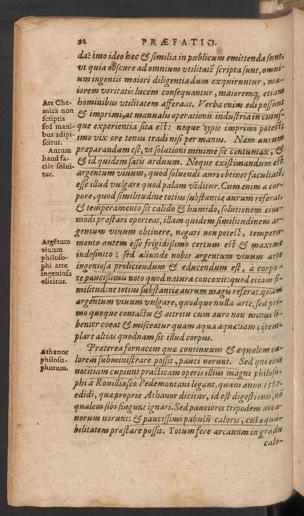 82 PRÆFATIO.
da: imo ideo hec & similia in publicum emittenda sunt,
vt quia obscure ad omnium vtilitatē scripta sunt, omni-
um ingeniis maiori diligentia dum exquiruntur, ma-
iorem veritatis lucem consequantur, maioremq, etiam
hominibus vtilitatem afferāt. Verba enim edi possunt
& imprimi, at manualis operationis industria in cuius-
que experientia sita est: neque typis imprimi potest,
imo vix ore tenus tradi nisi per manus. Nam aurum
præparandum est, vt solutioni minime sit contumax, &
& id quidem satis arduum. Neque existimandum est
argentum viuum, quod soluendi auri obtinet facultatē,
esse illud vulgare quod palam vēditur. Cum enim a cor-
pore, quod similitudine totius substantiæ aurum referat,
& temperamento sit calido & humido, solutionem eius-
modi præstari oporteat, illam quidem similitudinem ar-
gentum viuum obtinere, negari non potest, tempera-
mento autem esse frigidissimo certum est & maxime
indefinito: sed aliunde nobis argentum viuum arte
ingeniosa proliciendum & educendum est, a corpo-
re paucissimis noto quod natura concoxit: quod etiam si-
militudine totius substantiæ aurum magis referat, quàm
argentum viuum vulgare, quodque nulla arte, sed pri-
mo quoque contactu & attritu cum auro non minus li-
benter coeat & misceatur quam aqua aquæ: iam cōtem-
plare altius quodnam sit illud corpus.
Præterea fornacem quæ continuum & æqualem ca-
lorem subministrare possit, pauci norunt. Sed qui eius
notitiam cupiunt practicam operis illius magni philoso-
phi a Rouillasco Pedemontani legant, quam anno 1582.
edidi, qua proprie Athanor dicitur, id est
qualem sibi fingunt ignari. Sed pauciores tripodem arca-
norum norunt: & paucissimi pabulū caloris,
bilitatem præstare possit. Totum fere arcanum in gradu
calo-
Ars Che-
mica non
scriptis
sed mani-
bus adipi-
scitur.
Aurum
haud fa-
cile solui-
tur.
Argētum
viuum
philoso-
phi arte
ingeniosa
elicitur.
Athanor
philoso-
phorum.